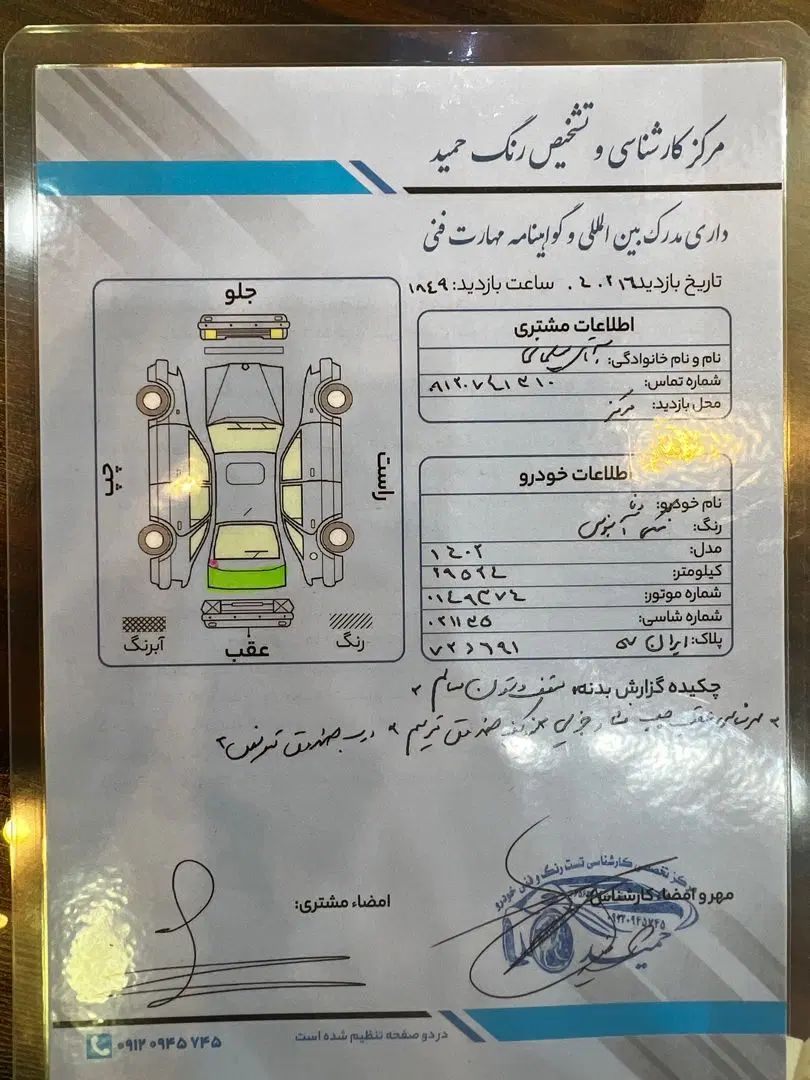 مرکز کارشناسی و تشخیص رنگ حمید
داری مدرک بین المللی و گواهینامه مهارت فنی
تاریخ بازدید: ۰۴۰۲۱۶ ساعت بازدید: ۱۸۴۹
جلو
چپ
راست
آبرنگ
عقب
رنگ
اطلاعات مشتری
نام و نام خانوادگی: آقای
شماره تماس:
محل بازدید: مرکز
اطلاعات خودرو
نام خودرو: دنا
رنگ: مشکی آبنوسی
مدل: ۱۴۰۲
کیلومتر: ۲۹۵۴۴
شماره موتور: ۰۱۴۹۳۷۴
شماره شاسی: ۰۲۱۱۳۵
پلاک: ایران
چکیده گزارش بدنه: سقف و ستون سالم
عقب و جزیی کف صندوق ترمیم درب صندوق تعویض
امضاء مشتری:
مهر و امضاء کارشناس:
مرکز تخصصی کارشناسی تست رنگ و فنی خودرو
۰۹۱۲۰۹۴۵۷۴۵
حمید
در دو صفحه تنظیم شده است
۰۹۱۲۰۹۴۵۷۴۵